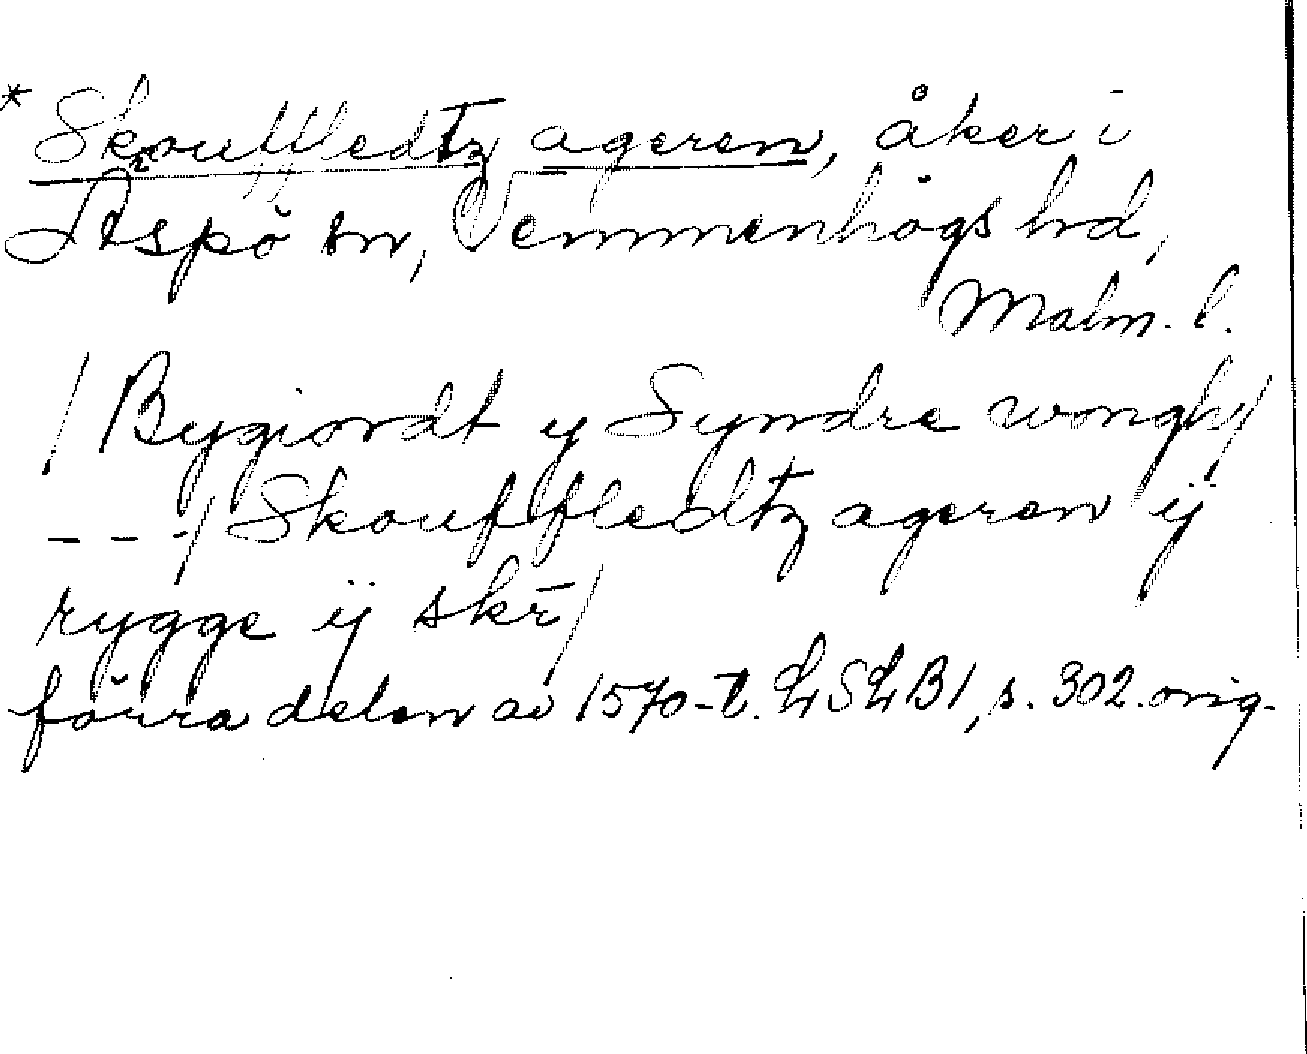 * Skouffledtz ageren, åker i
Äspö sn, Vemmenhögs hd,
Malm. l.
/ Bygiordt y Syndre wongh/
---/ Skouffledtz ageren ij
rygge ij skr/
förra delen av 1570-t. LSLB1, s. 302. orig.